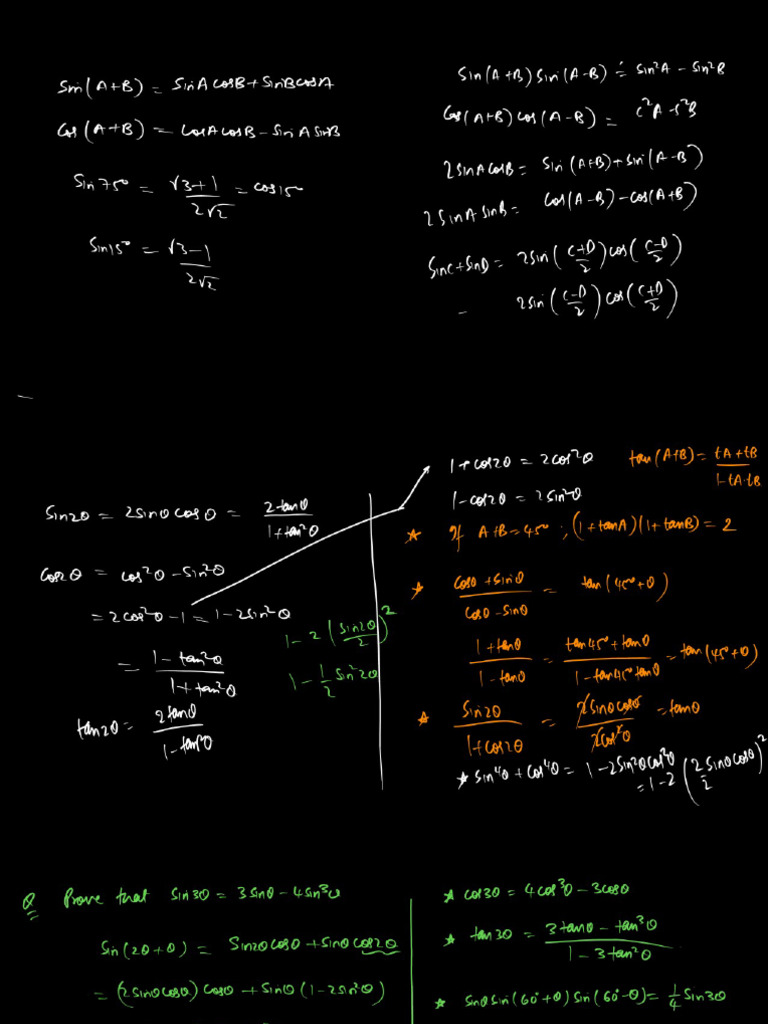 Sin(A+B) = SinA cosB + SinB cosA
Cos(A+B) = cosA cosB - SinA sinB
Sin75° = (√3+1)/(2√2) = cos15°
Sin15° = (√3-1)/(2√2)
Sin(A+B) Sin(A-B) = Sin²A - Sin²B
Cos(A+B) cos(A-B) = c²A - s²B
2SinA cosB = Sin(A+B) + Sin(A-B)
2SinA SinB = Cos(A-B) - cos(A+B)
SinC + SinD = 2Sin((C+D)/2) cos((C-D)/2)
- 2Sin((C-D)/2) cos((C+D)/2)
Sin2θ = 2Sinθ cosθ = 2tanθ/(1+tan²θ)
Cos2θ = cos²θ - Sin²θ
= 2cos²θ - 1 = 1 - 2Sin²θ
= (1 - tan²θ)/(1 + tan²θ)
tan2θ = 2tanθ/(1 - tan²θ)
1 - 2(Sin2θ/2)²
1 - 1/2 Sin²2θ
1 + cos2θ = 2cos²θ
1 - cos2θ = 2Sin²θ
tan(A+B) = (tA + tB)/(1 - tA·tB)
★ If A+B = 45° ; (1+tanA)(1+tanB) = 2
★ (cosθ + sinθ)/(cosθ - sinθ) = tan(45° + θ)
(1 + tanθ)/(1 - tanθ) = (tan45° + tanθ)/(1 - tan45° tanθ) = tan(45° + θ)
★ Sin2θ/(1 + cos2θ) = 2Sinθ cosθ/2cos²θ = tanθ
★ Sin⁴θ + Cos⁴θ = 1 - 2Sin²θ cos²θ
= 1 - 2(2 Sinθ cosθ/2)²
Q Prove that Sin3θ = 3Sinθ - 4Sin³θ
Sin(2θ + θ) = Sin2θ cosθ + Sinθ cos2θ
= (2Sinθ cosθ) cosθ + Sinθ (1 - 2Sin²θ)
★ cos3θ = 4cos³θ - 3cosθ
★ tan3θ = (3tanθ - tan³θ)/(1 - 3tan²θ)
★ Sinθ Sin(60° + θ) Sin(60° - θ) = 1/4 Sin3θ